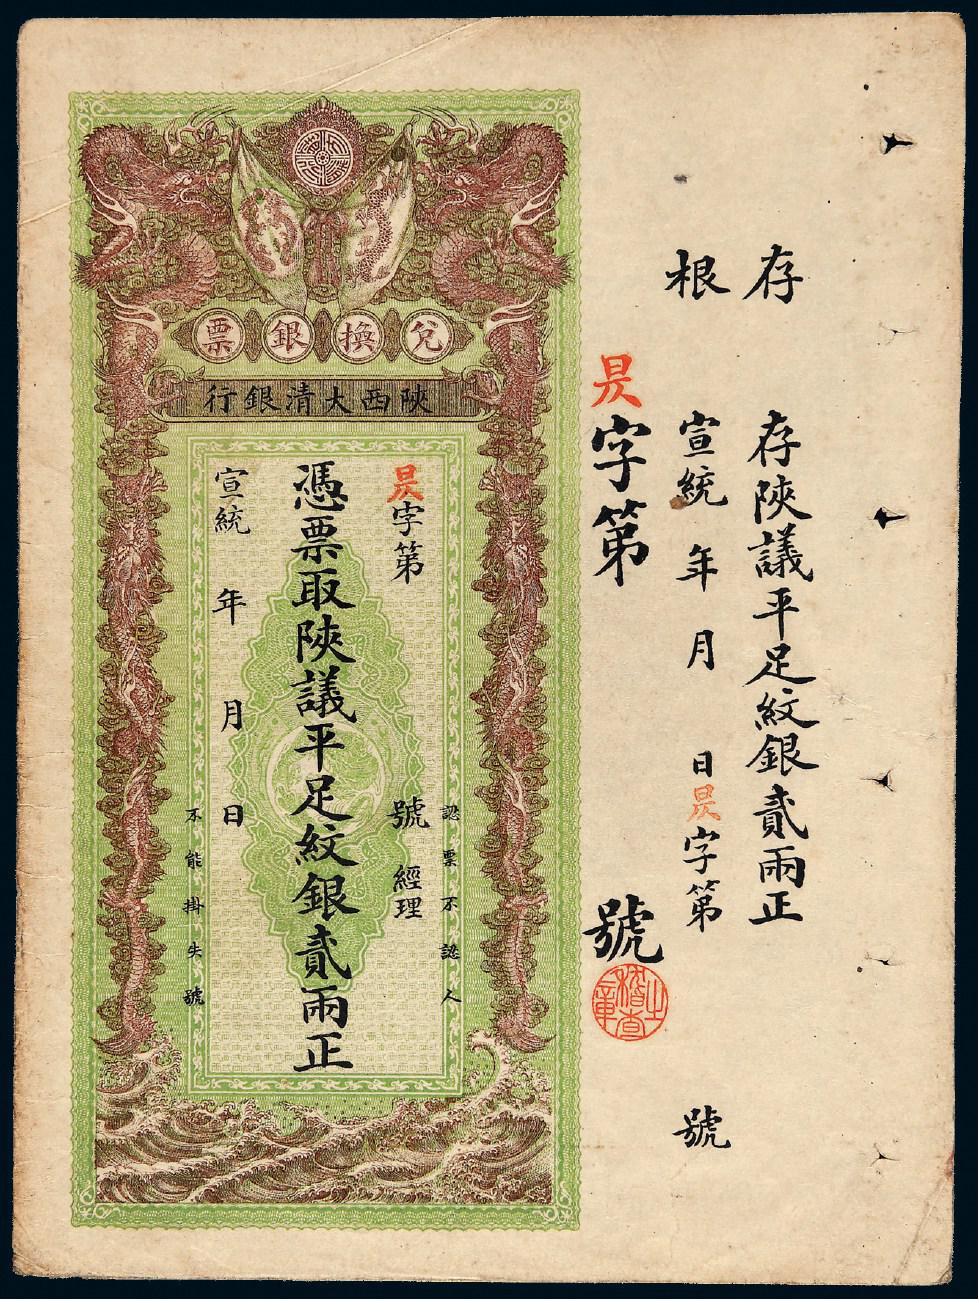 存根
存陝議平足紋銀貳兩正
宣統 年 月 日昃字第 號
昃字第 號
稽查之章
兌換銀票
陝西大清銀行
認票不認人
昃字第 號 經理
憑票取陝議平足紋銀貳兩正
宣統 年 月 日
不能掛失號